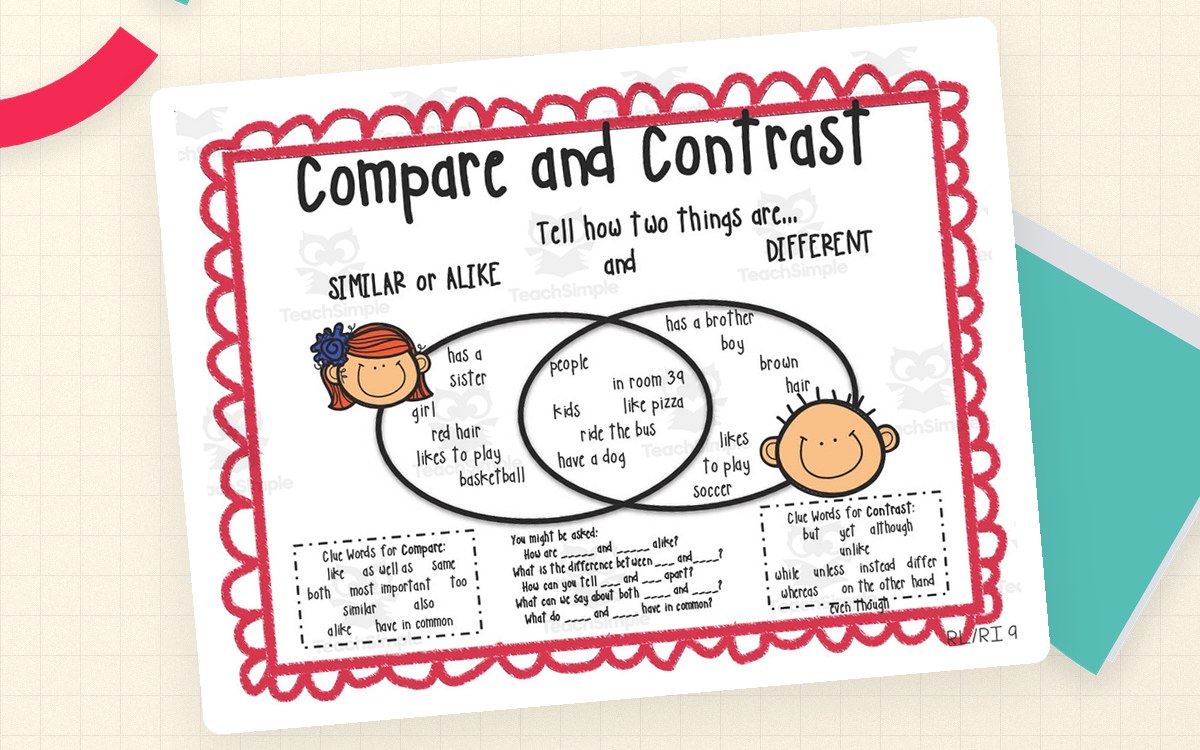 Compare and Contrast
Tell how two things are...
SIMILAR or ALIKE
and
DIFFERENT
has a
sister
girl
red hair
likes to play
basketball
people
in room 39
kids
like pizza
ride the bus
have a dog
has a brother
boy
brown
hair
likes
to play
soccer
Clue Words for Compare:
like as well as same
both most important too
similar also
alike have in common
You might be asked:
How are ______ and ______ alike?
What is the difference between ____ and_____?
How can you tell ____ and ____ apart?
What can we say about both _____ and _____?
What do _____ and _____ have in common?
Clue Words for Contrast:
but yet although
unlike
while unless instead differ
whereas on the other hand
even though
RL/RI 9
TeachSimple
TeachSimple
TeachSimple
TeachSimple
TeachSimple
TeachSimple